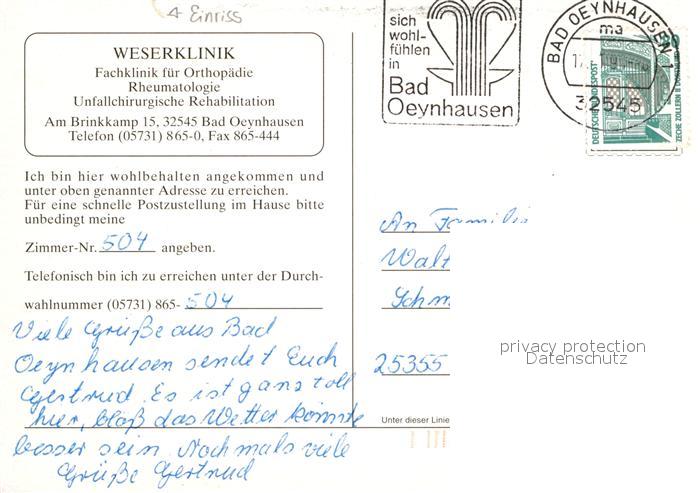 4 Einriss
WESERKLINIK
Fachklinik für Orthopädie
Rheumatologie
Unfallchirurgische Rehabilitation
Am Brinkkamp 15, 32545 Bad Oeynhausen
Telefon (05731) 865-0, Fax 865-444
Ich bin hier wohlbehalten angekommen und
unter oben genannter Adresse zu erreichen.
Für eine schnelle Postzustellung im Hause bitte
unbedingt meine
Zimmer-Nr. 504 angeben.
Telefonisch bin ich zu erreichen unter der Durch-
wahlnummer (05731) 865- 504
Viele Grüße aus Bad
Oeynhausen sendet Euch
Gertrud. Es ist ganz toll
hier, bloß das Wetter könnte
besser sein. Nochmals viele
Grüße Gertrud
sich
wohl-
fühlen
in
Bad
Oeynhausen
BAD OEYNHAUSEN 1
ma
32545
DEUTSCHE BUNDESPOST
ZECHE ZOLLERN II
An Familie
Walt
Schm
25355
privacy protection
Datenschutz
Unter dieser Linie